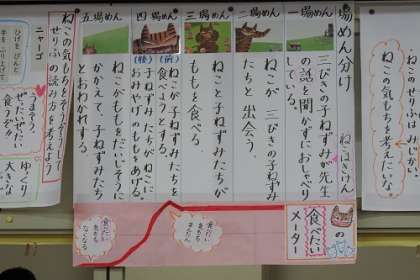 場めん分け
ねこはさけん
一場めん
三びきの子ねずみが先生
の話を聞かずにおしゃべり
している。
二場めん
ねこが、三びきの子ねずみ
たちと出会う。
三場めん
ねこと子ねずみたちが
ももを食べる。
四場めん
(前)
ねこが子ねずみたちを
食べようとする。
(後)
子ねずみたちがねこに
おみやげのももをあげる。
五場めん
ねこがももをだいじそうに
かかえて、子ねずみたち
とおわかれする。
ねこの
食べたい
メーター
食べたい
気もち
ねこの気もちをそうぞうして
せりふの読み方を考えよう
ニャーゴ
ひげをぴんと
手をふり上げて
うまそう。
ぜったいぜったい
食うぞ!!
ゆっくり
大いな
せりふはみじ
ねこの気もちを
考えたいな